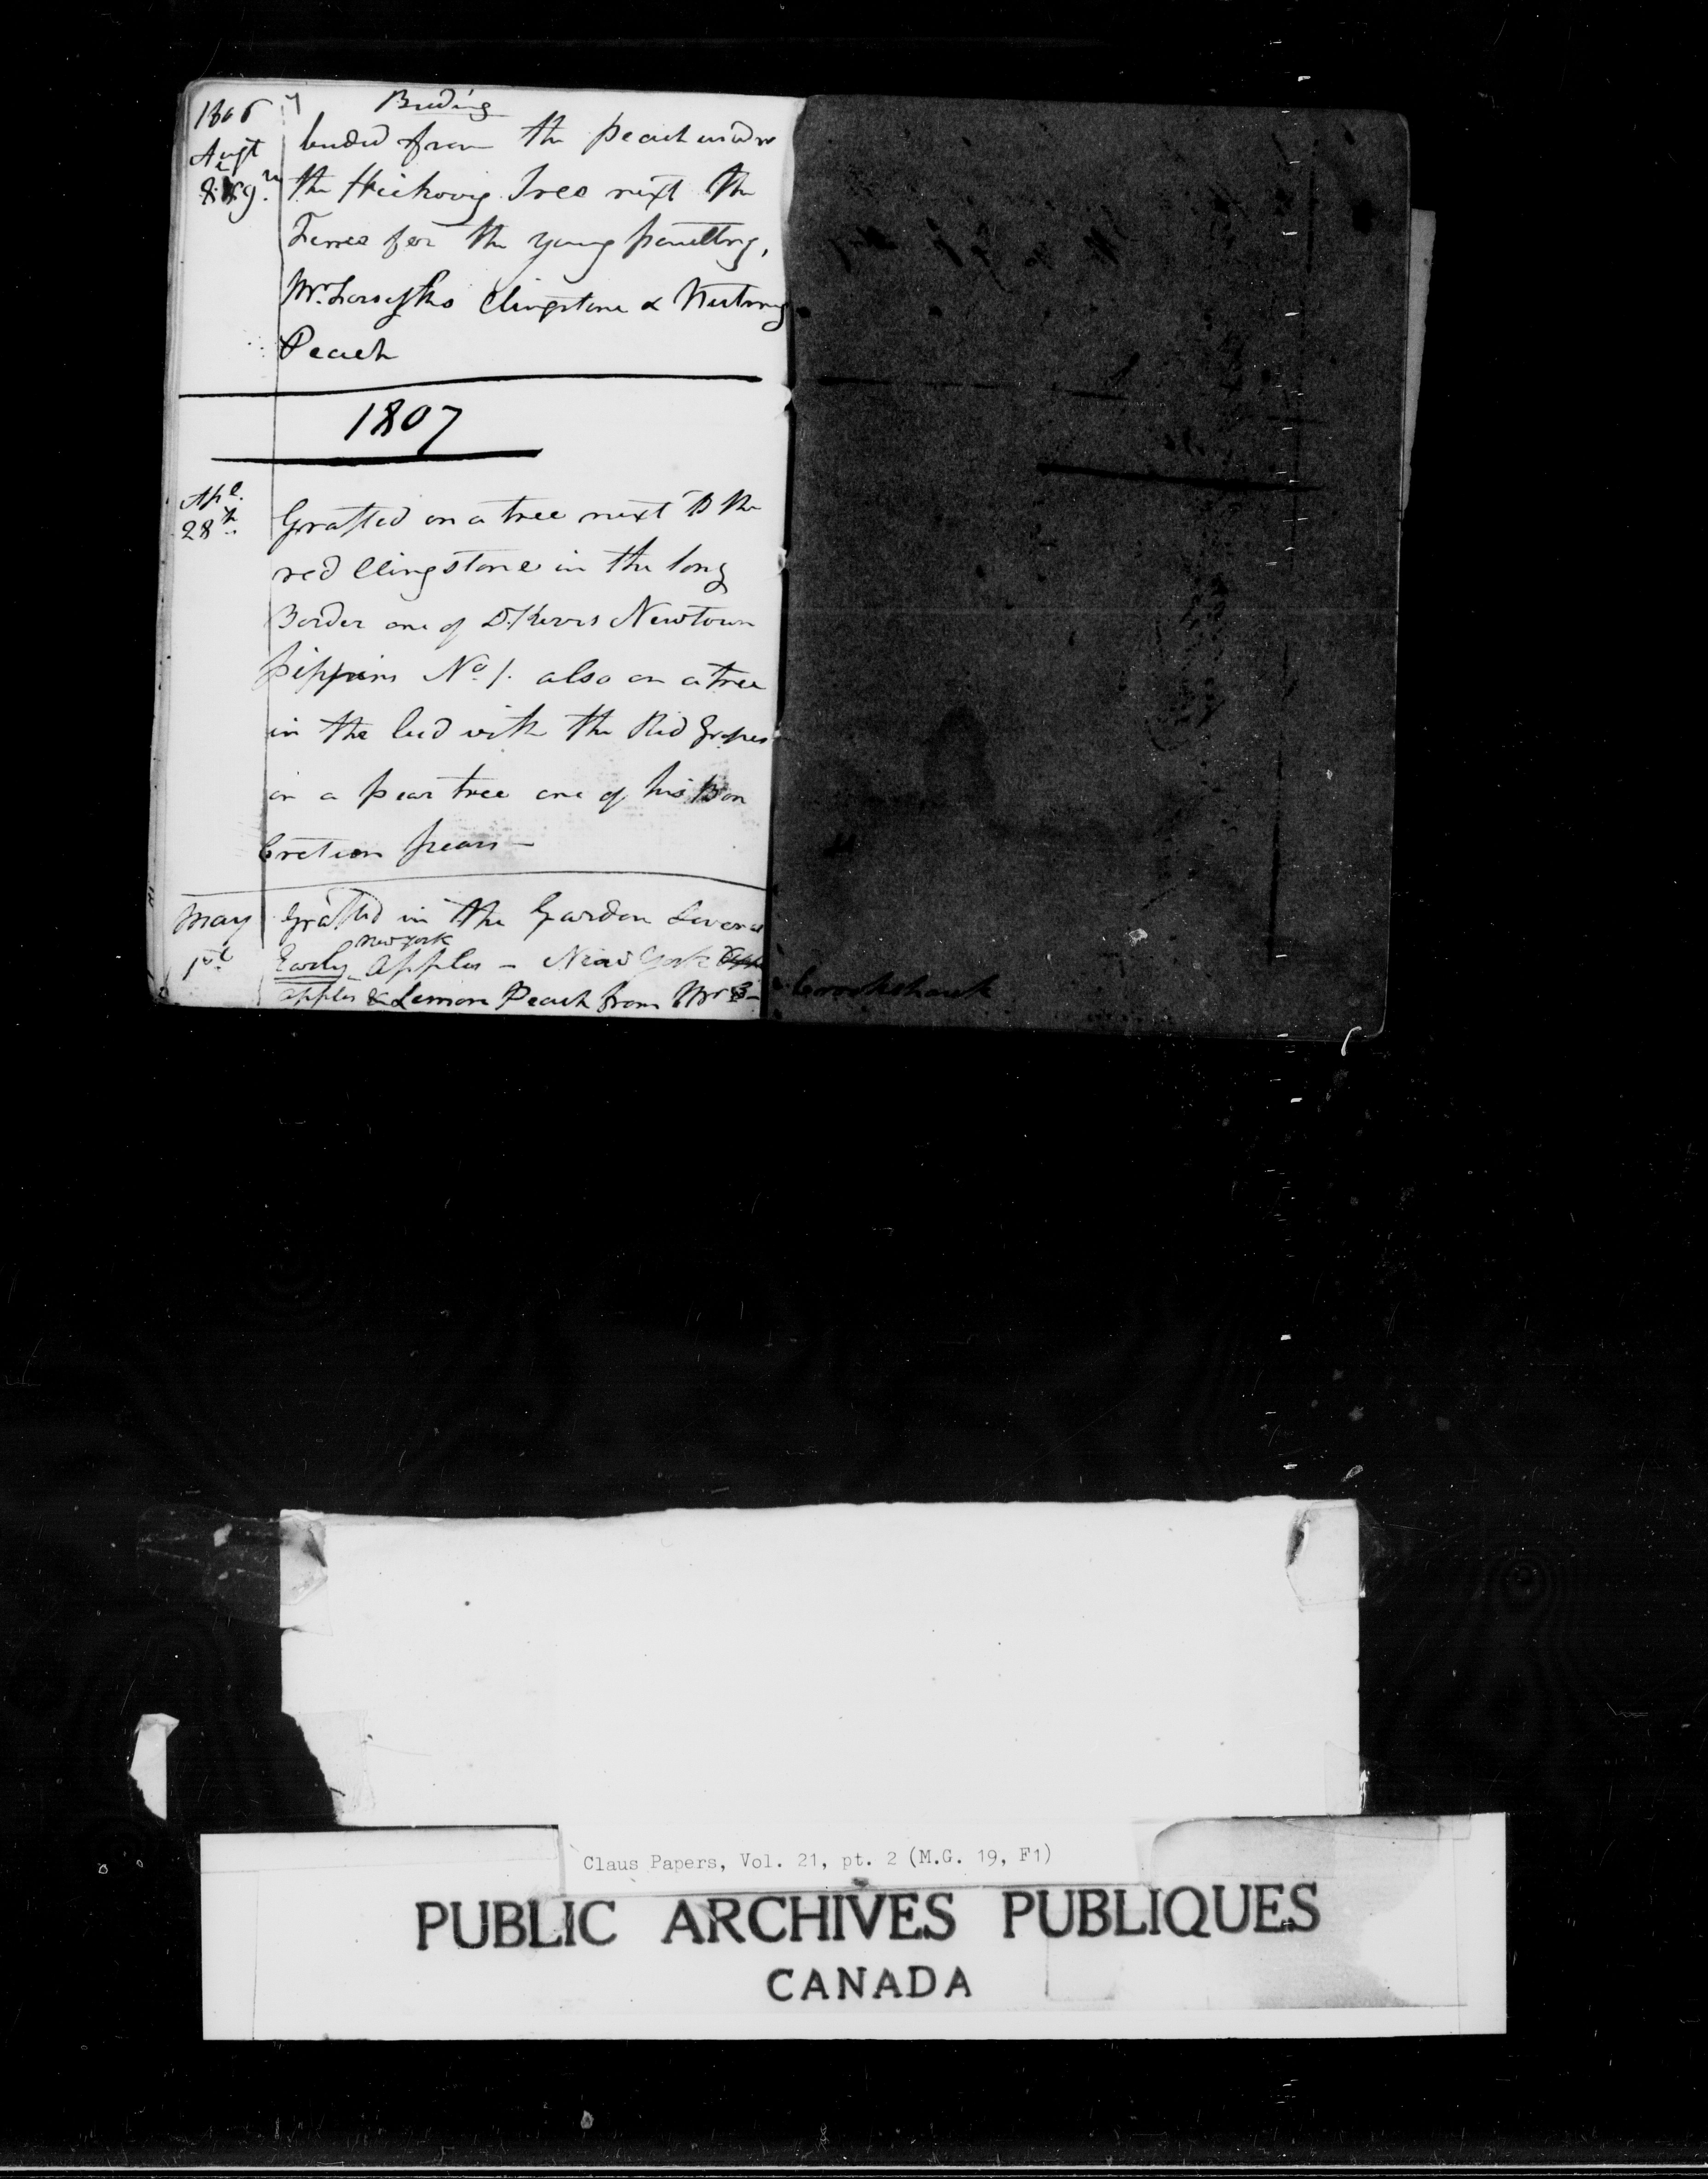 1806 Buding
Augt buded from the peach under
8 & 9th the Hickory Tree next the
Fence for the young
Mr. Forsyths Clingstone & Nutmeg
Peach
1807
Apl. 28th Grafted on a tree next to the
red Clingstone in the long
Border one of D. Kerrs Newtown
pippins No. 1. also on a tree
in the bed with the Red Grapes
on a pear tree one of his Bon
Cretien pears —
May 1st Grafted in the Garden Several
new york
Early Apples — New York App
apples & Lemon Peach from Mr C— Crookshank
Claus Papers, Vol. 21, pt. 2 (M.G. 19, F1)
PUBLIC ARCHIVES PUBLIQUES
CANADA